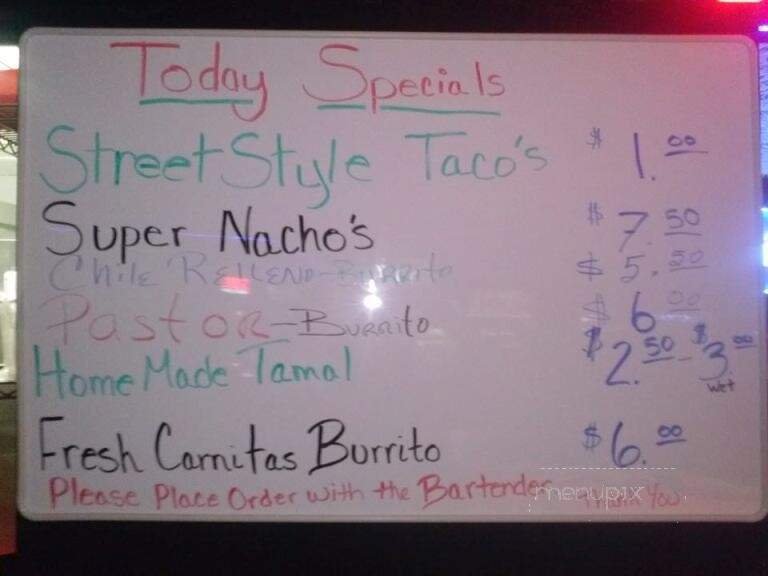 Today Specials
Street Style Taco's $1.00
Super Nacho's $7.50
Chile Relleno-Burrito $5.50
Pastor-Burrito $6.00
Home Made Tamal $2.50-$3.00
wet
Fresh Carnitas Burrito $6.00
Please Place Order with the Bartender Thank You
menupix